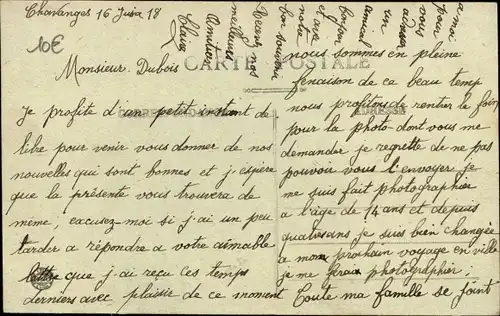 Chavanges 16 Juin 18
10€
CARTE POSTALE
CORRESPONDANCE
ADRESSE
Monsieur Dubois
Je profite d'un petit instant de
libre pour venir vous donner de nos
nouvelles qui sont bonnes et j'espère
que la présente vous trouvera de
même, excusez-moi si j'ai un peu
tarder a répondre a votre aimable
lettre que j'ai reçu ces temps
derniers avec plaisir de ce moment
nous sommes en pleine
fenaison de ce beau temp
nous profitons de rentrer le foin
pour la photo dont vous me
demander je regrette de ne pas
pouvoir vous l'envoyer je
me suis fait photographier
a l'âge de 14 ans et depuis
quatres ans je suis bien changée
a mon prochain voyage en ville
je me ferai photographier;
Toute ma famille se joint
a moi
pour
vous
un
amical
bonjour
et au
notre
bon souvenir
Recevez nos
meilleures
Amitiés